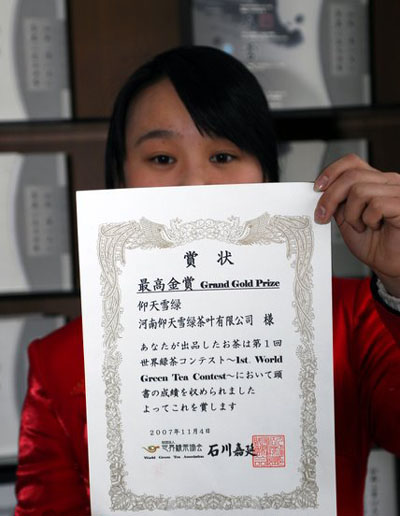 賞状
最高金賞 Grand Gold Prize
仰天雪绿
河南仰天雪绿茶叶有限公司 様
あなたが出品したお茶は第1回
世界緑茶コンテスト～1st. World
Green Tea Contest～において頭
書の成績を収められました
よってこれを賞します
2007年11月4日
財団法人
世界緑茶協会 石川嘉延
World Green Tea Association